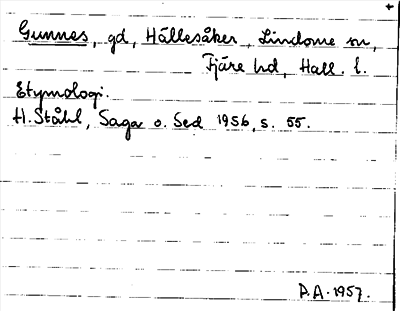 Gunnes, gd, Hällesåker, Lindome sn,
Fjäre hd, Hall. l.
Etymologi.
H. Ståhl, Saga o. Sed 1956, s. 55.
P.A. 1957.